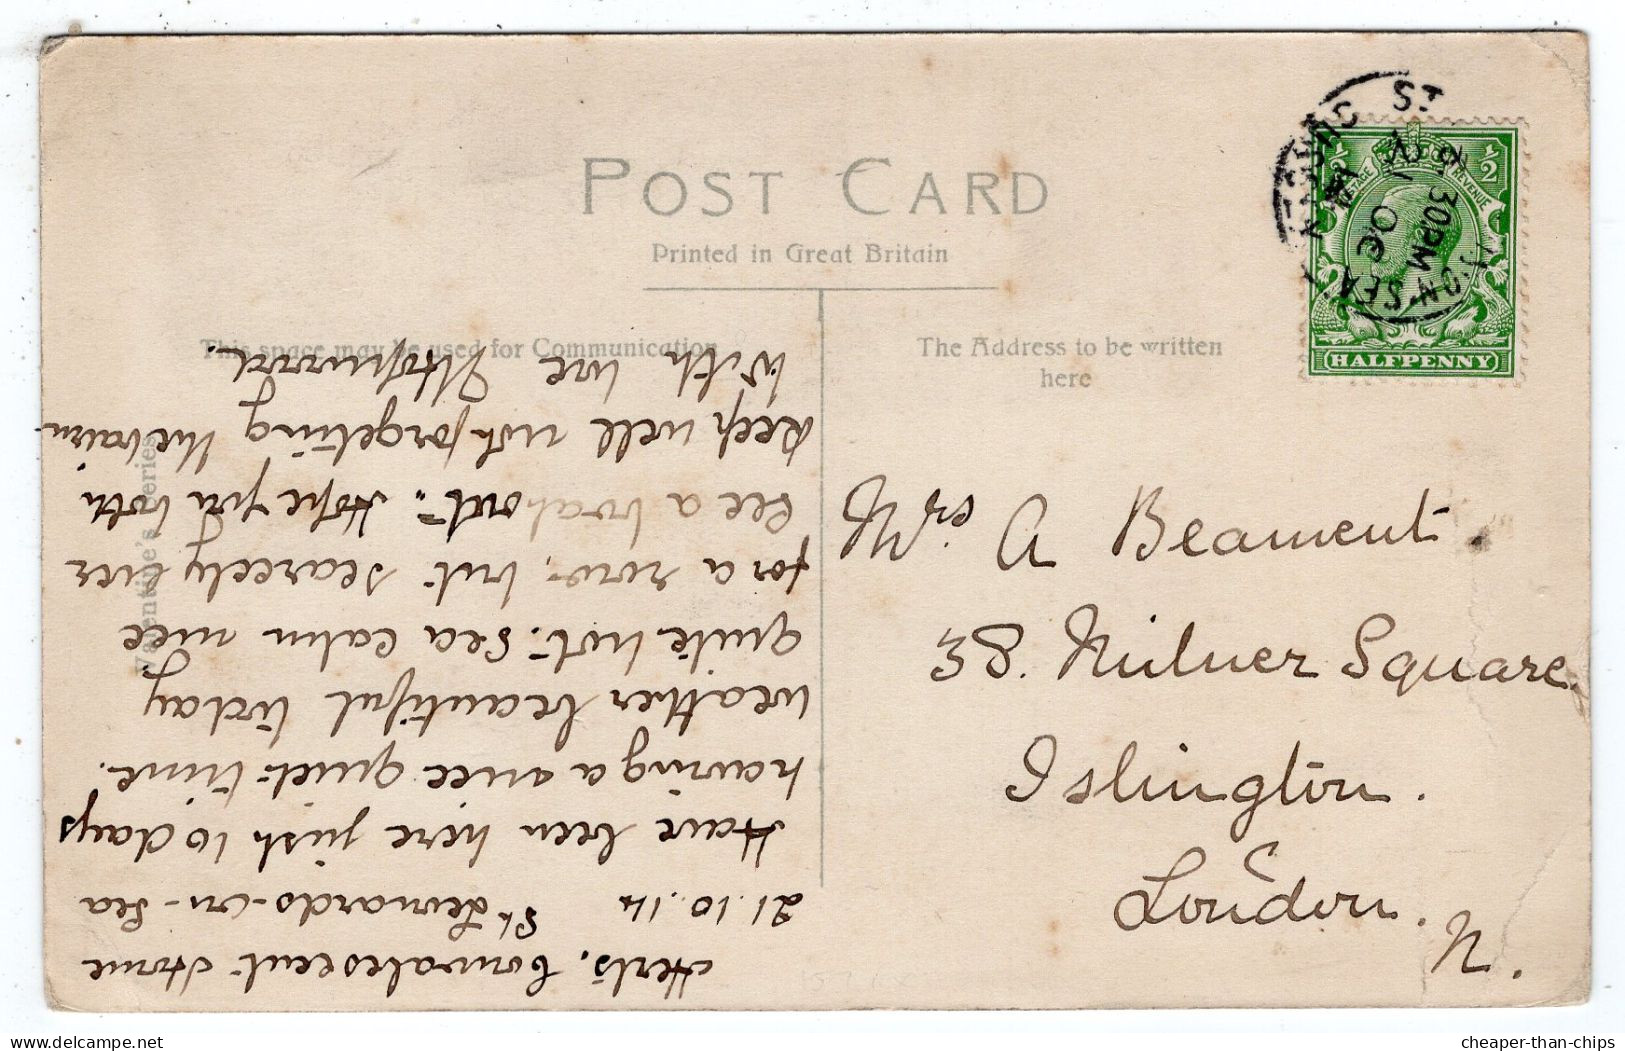 POST CARD
Printed in Great Britain
This space may be used for Communication
The Address to be written
here
Valentine's Series
½ ½
POSTAGE REVENUE
HALFPENNY
ST
ON-SEA
30PM
21 OC
14
Mrs A Beament.
38. Milner Square.
Islington.
London.
N.
Herts. Convalescent Home
21.10.14 St Leonards-on-Sea
Have been here just 10 days
having a nice quiet time.
Weather beautiful today
quite hot. Sea calm nice
for a row, but scarcely ever
see a boat out. Hope you both
keep well not forgetting the bairn
With love
cheaper-than-chips
delcampe.net